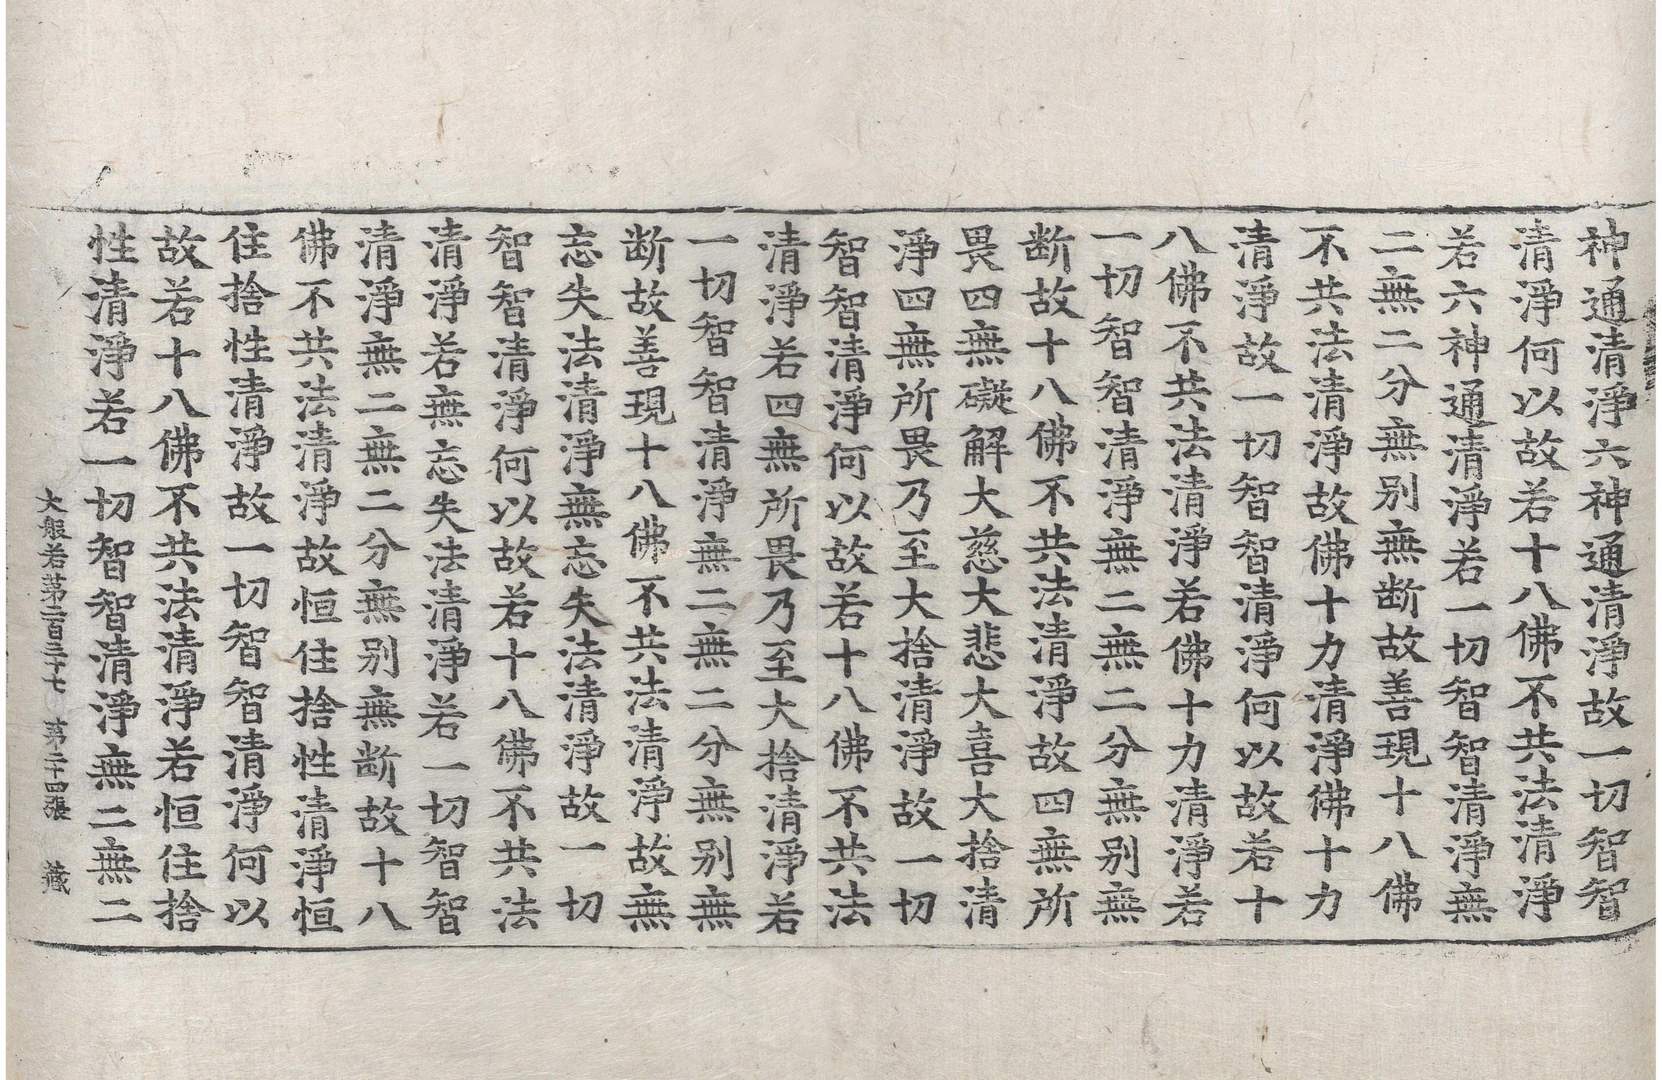 神通清淨六神通清淨故一切智智
清淨何以故若十八佛不共法清淨
若六神通清淨若一切智智清淨無
二無二分無別無断故善現十八佛
不共法清淨故佛十力清淨佛十力
清淨故一切智智清淨何以故若十
八佛不共法清淨若佛十力清淨若
一切智智清淨無二無二分無別無
断故十八佛不共法清淨故四無所
畏四無礙解大慈大悲大喜大捨清
淨四無所畏乃至大捨清淨故一切
智智清淨何以故若十八佛不共法
清淨若四無所畏乃至大捨清淨若
一切智智清淨無二無二分無別無
断故善現十八佛不共法清淨故無
忘失法清淨無忘失法清淨故一切
智智清淨何以故若十八佛不共法
清淨若無忘失法清淨若一切智智
清淨無二無二分無別無断故十八
佛不共法清淨故恒住捨性清淨恒
住捨性清淨故一切智智清淨何以
故若十八佛不共法清淨若恒住捨
性清淨若一切智智清淨無二無二
大般若第二百三十七 第二十四張 藏